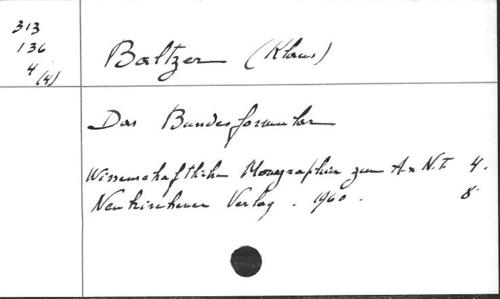 313
136
4 (4)
Baltzer (Klaus)
Das Bundesformular
Wissenschaftliche Monographien zum A u N.T 4.
Neukirchener Verlag . 1960 . 8°